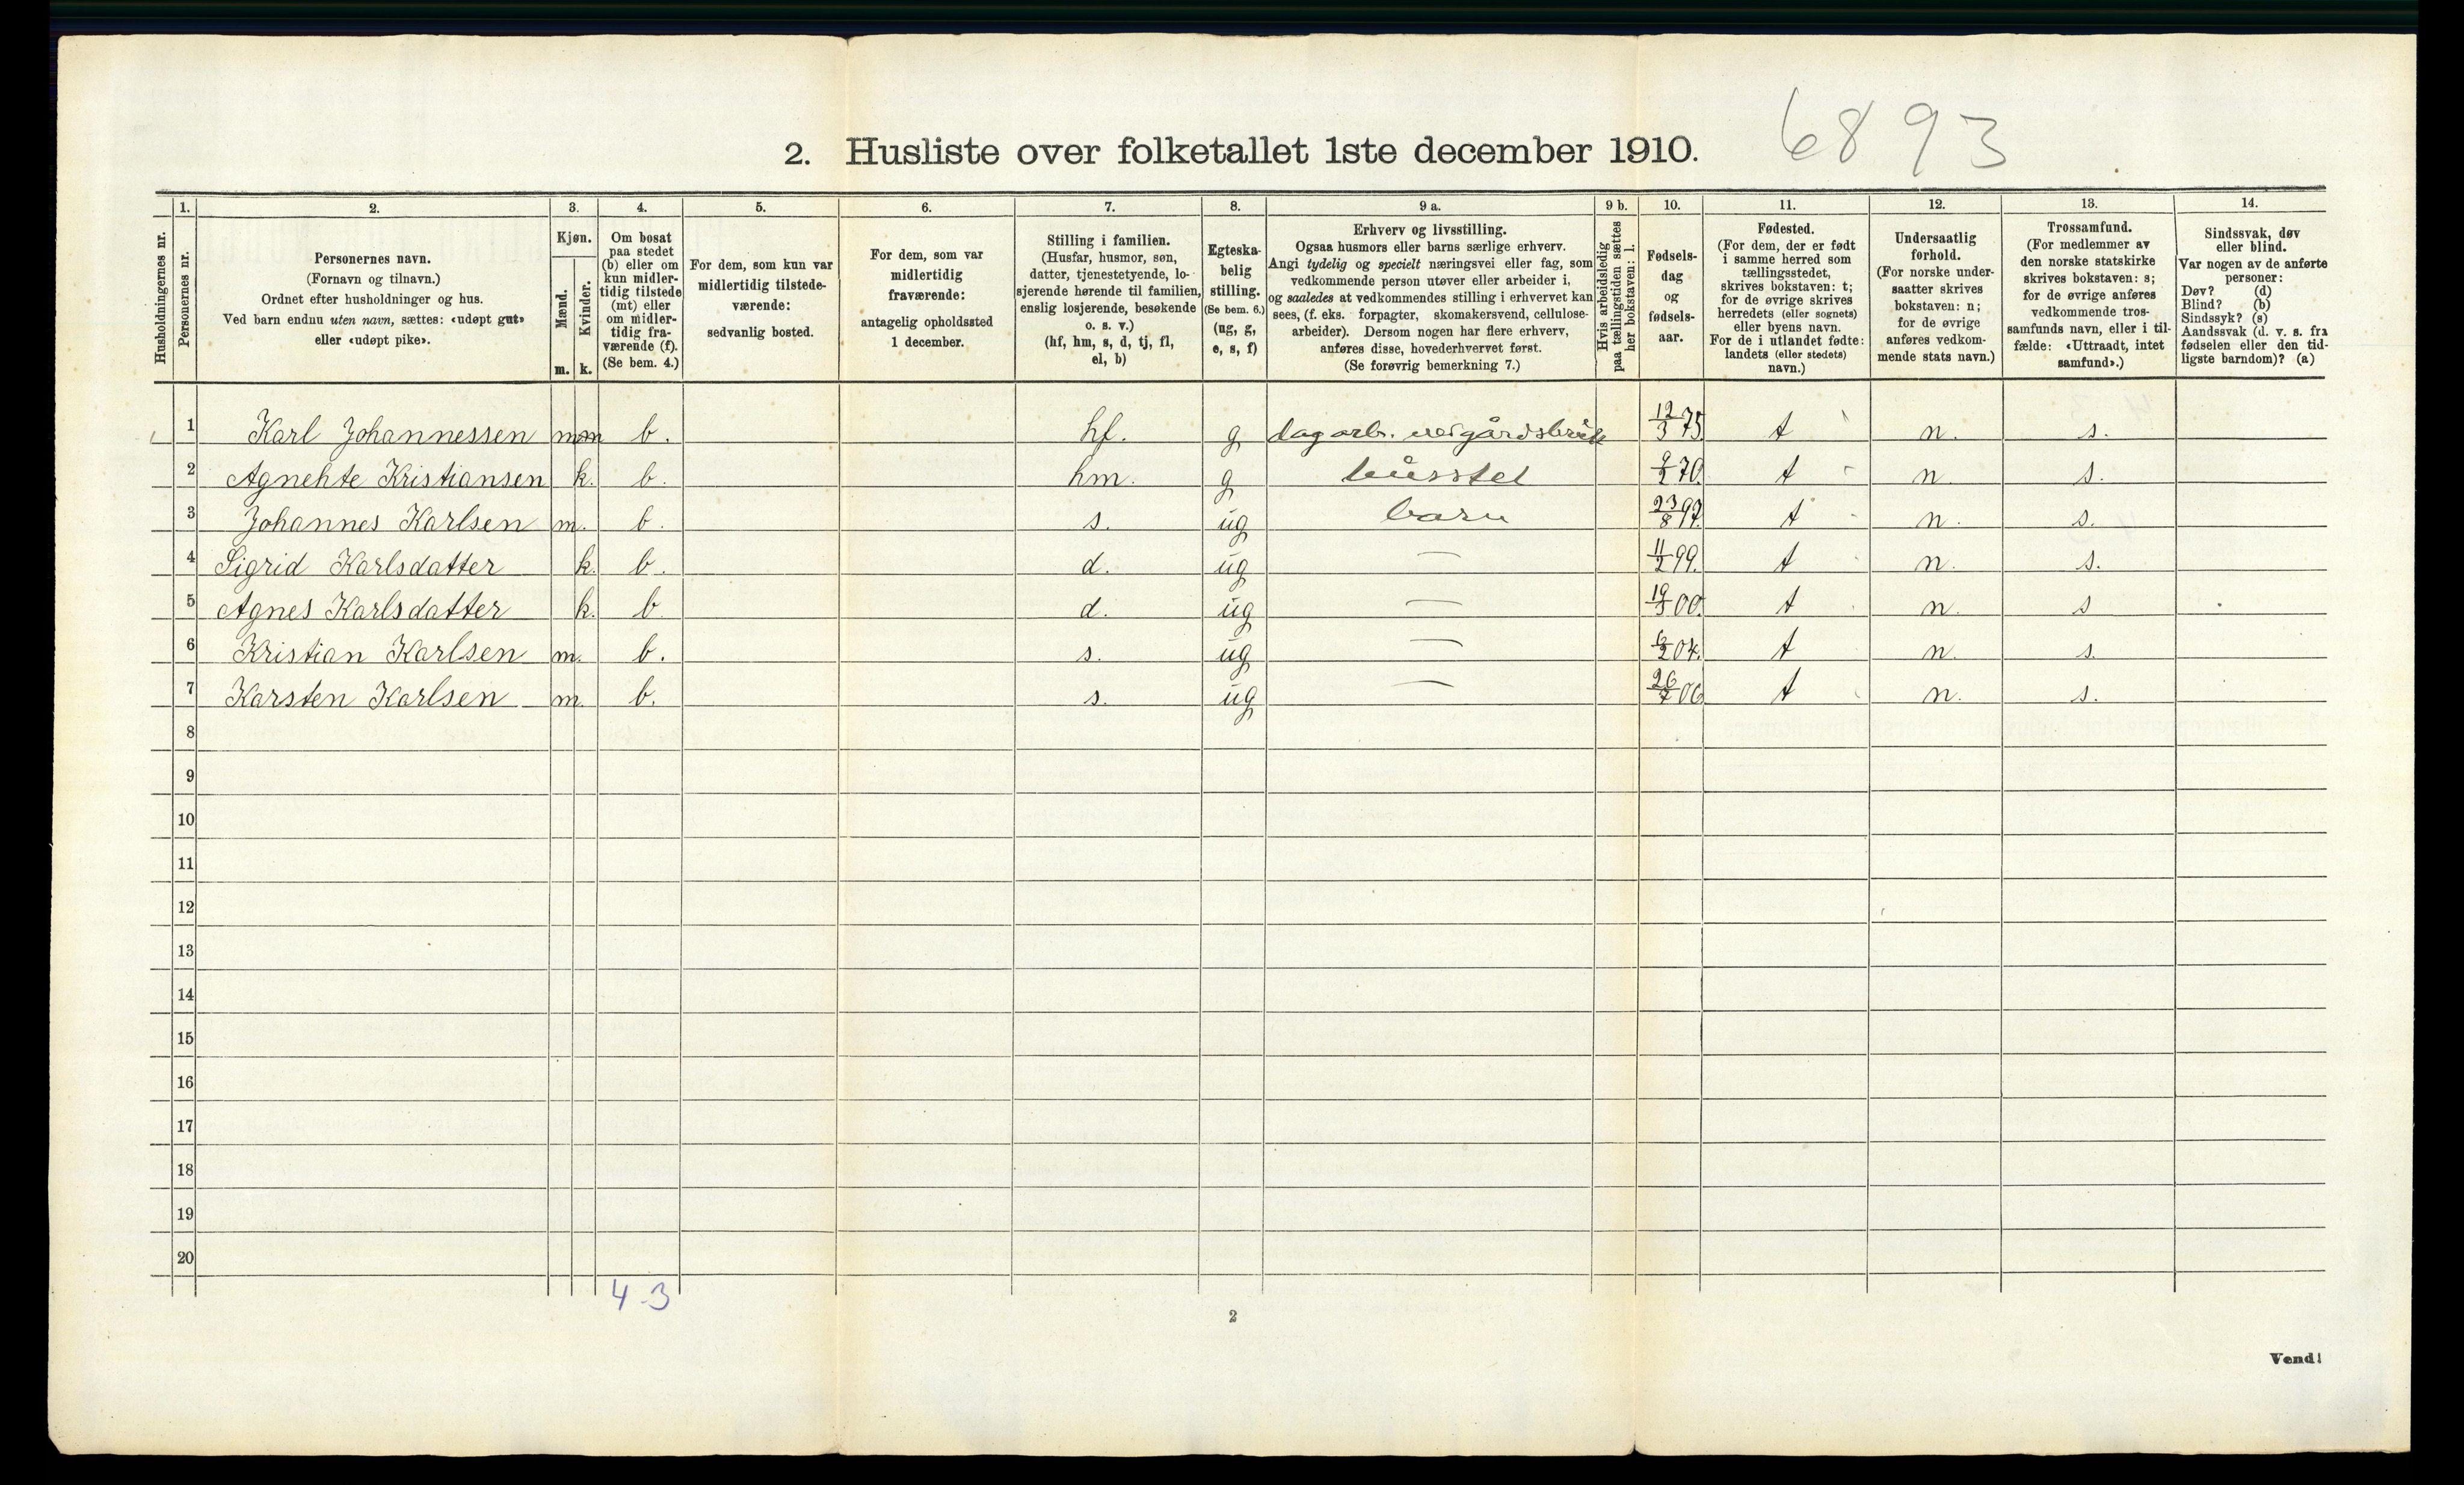 6893
2. Husliste over folketallet 1ste december 1910.
Husholdningernes nr.
1. Personernes nr.
2. Personernes navn.
(Fornavn og tilnavn.)
Ordnet efter husholdninger og hus.
Ved barn endnu uten navn, sættes: «udøpt gut»
eller «udøpt pike».
3. Kjøn.
Mænd. m.
Kvinder. k.
4. Om bosat
paa stedet
(b) eller om
kun midler-
tidig tilstede
(mt) eller
om midler-
tidig fra-
værende (f).
(Se bem. 4.)
5. For dem, som kun var
midlertidig tilstede-
værende:
sedvanlig bosted.
6. For dem, som var
midlertidig
fraværende:
antagelig opholdssted
1 december.
7. Stilling i familien.
(Husfar, husmor, søn,
datter, tjenestetyende, lo-
sjerende hørende til familien,
enslig losjerende, besøkende
o. s. v.)
(hf, hm, s, d, tj, fl,
el, b)
8. Egteska-
belig
stilling.
(Se bem. 6.)
(ug, g,
e, s, f)
9 a. Erhverv og livsstilling.
Ogsaa husmors eller barns særlige erhverv.
Angi tydelig og specielt næringsvei eller fag, som
vedkommende person utøver eller arbeider i,
og saaledes at vedkommendes stilling i erhvervet kan
sees, (f. eks. forpagter, skomakersvend, cellulose-
arbeider). Dersom nogen har flere erhverv,
anføres disse, hovederhvervet først.
(Se forøvrig bemerkning 7.)
9 b. Hvis arbeidsledig
paa tællingstiden sættes
her bokstaven: l.
10. Fødsels-
dag
og
fødsels-
aar.
11. Fødested.
(For dem, der er født
i samme herred som
tællingsstedet,
skrives bokstaven: t;
for de øvrige skrives
herredets (eller sognets)
eller byens navn.
For de i utlandet fødte:
landets (eller stedets)
navn.)
12. Undersaatlig
forhold.
(For norske under-
saatter skrives
bokstaven: n;
for de øvrige
anføres vedkom-
mende stats navn.)
13. Trossamfund.
(For medlemmer av
den norske statskirke
skrives bokstaven: s;
for de øvrige anføres
vedkommende tros-
samfunds navn, eller i til-
fælde: «Uttraadt, intet
samfund».)
14. Sindssvak, døv
eller blind.
Var nogen av de anførte
personer:
Døv? (d)
Blind? (b)
Sindssyk? (s)
Aandssvak (d. v. s. fra
fødselen eller den tid-
ligste barndom)? (a)
1 Karl Johannessen m b. hf. g dagarb. 12/3 75. t n. s.
2 Agnehte Kristiansen k. b. hm. g husstel 70. t n. s.
3 Johannes Karlsen m. b. s. ug barn 23/8 97. t n. s.
4 Sigrid Karlsdatter k. b. d. ug — 11/2 99. t n. s.
5 Agnes Karlsdatter k. b d. ug — 00. t n. s
6 Kristian Karlsen m. b. s. ug — 6/2 04. t n. s.
7 Karsten Karlsen m. b. s. ug — 26/7 06 t n. s.
8
9
10
11
12
13
14
15
16
17
18
19
20
4-3
2
Vend!